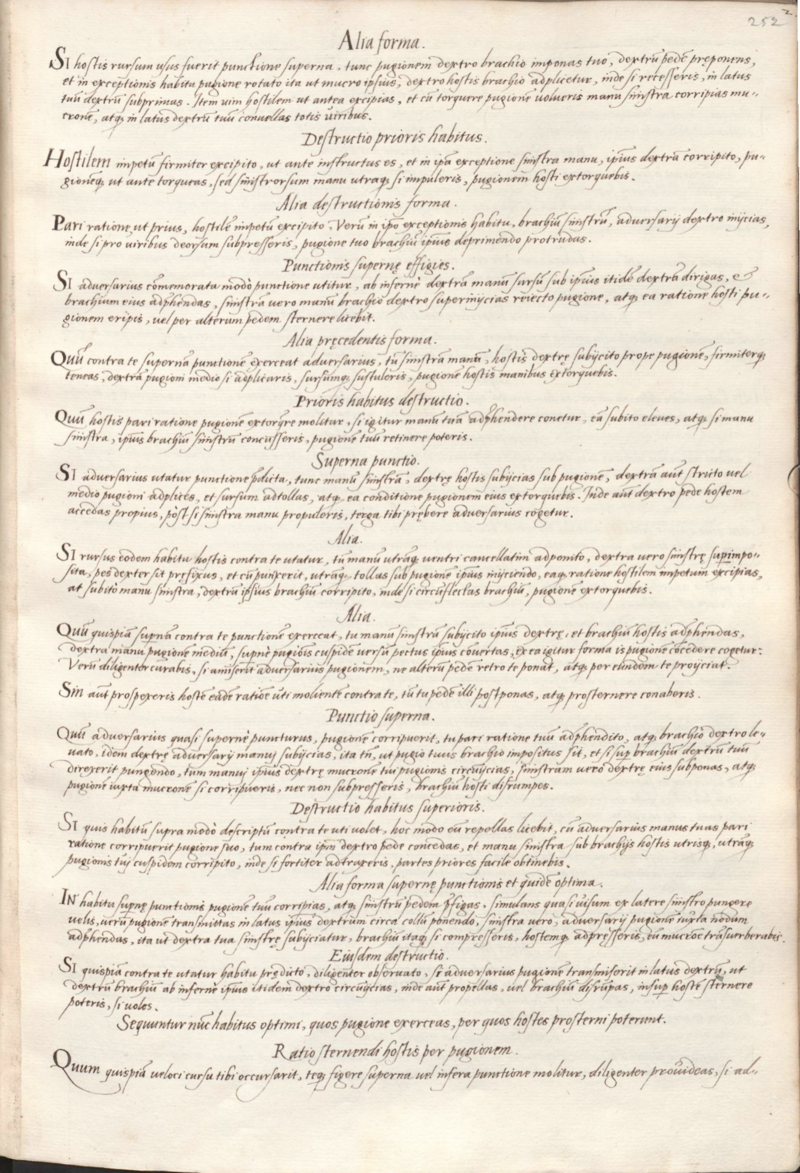 252
Alia forma.
SI hostis rursum usus fuerit punctione superna, tunc pugionem dextro brachio imponas tuo, dextrũ pedẽ preponens,
et in exceptionis habitu pugione rotato ita ut mucro ipsius, dextro hostis brachio adplicetur, inde si recesseris, in latus
tuũ dextrũ subprimas. Item uim hostilem ut antea excipias, et cũ torquere pugionẽ uolueris manu sinistra corripias mu-
cronẽ, atq; in latus dextrũ tuũ conuellas totis uiribus.
Destructio prioris habitus.
Hostilem impetũ firmiter excipito, ut ante instructus es, et in ipã exceptione sinistra manu, ipsius dextrũ corripito, pu-
gionẽq; ut ante torqueas, sed sinistrorsum manu utraq; si impuleris, pugionem hosti extorquebis.
Alia destructionis forma.
Pari ratione, ut prius, hostilẽ impetũ excipito. Verũ in ipõ exceptionis habitu, brachiũ sinistrũ, adversarij dextro inijcias,
inde si pro uiribus deorsum subpresseris, pugione tuo brachiũ ipsius deprimendo protrudas.
Punctionis supernę effigies.
SI adversarius cõmemorata modò punctione utitur, ab infernè dextrã manũ sursũ sub ipsius itidẽ dextrũ dirigas, et
brachium eius adphendas, sinistrã vero manũ brachio dextro superinijcias reiecto pugione, atq; ea ratione hosti pu-
gionem eripis, vel per alterum pedem sternere licebit.
Alia pręcedentis forma.
Quũ contra te supernã punctionẽ exerceat adversarius, tũ sinistrã manũ, hostis dextrę subijcito prope pugionẽ, firmiterq;
teneas, dextrã pugioni medio si adplicaris, sursumq; sustuleris, pugionẽ hostis manibus extorquebis.
Prioris habitus destructio.
Quũ hostis pari ratione pugionẽ extorq̃re molitur, si igitur manũ tuã adphendere conetur, eã subito eleves, atq; si manu
sinistra, ipsius brachiũ sinistrũ concusseris, pugionẽ tuũ retinere poteris.
Superna punctio.
SI adversarius utatur punctione p̃dicta, tunc manũ sinistrã, dextrę hostis subijcias sub pugionẽ, dextrã aũt stricto vel
medio pugioni adplices, et sursum adtollas, atq; ea conditione pugionem eius extorquebis. Inde aũt dextro pede hostem
accedas propius, pòst si sinistra manu propuleris, terga tibi prębere adversarius cogetur.
Alia.
SI rursus eòdem habitu hostis contra te utatur, tũ manũ utraq; ventri cancellatim adponito, dextra uero sinistrę superimpo-
sita, pes dexter sit pręfixus, et cũ punxerit, utraq; tollas sub pugionẽ ipsius inijciendo, eaq; ratione hostilem impetum excipias,
at subitò manu sinistra, dextrũ ipsius brachiũ corripito, inde si circũflectas brachiũ, pugionẽ extorquebis.
Alia.
Quũ quispiã supernã contra te punctionẽ exerceat, tu manũ sinistrã subijcito ipsius dextrę, et brachiũ hostis adphendas,
dextra manu pugionẽ mediũ, supnè pugiõis cuspide versũ pectus ipsius cõuertas, ex ea igitur forma is pugionẽ cõcedere cogetur.
Verũ diligenter curabis, si amiserit adversarius pugionem, ne alterũ pedẽ retrò ponat, atq; per eundem te proijciat.
Sin aũt prospexeris hostẽ eãdẽ ratiõe uti molientẽ contra te, tũ tu pedẽ illi postponas, atq; prosternere conaberis.
Punctio superna.
Quũ adversarius quasi supernè puncturus, pugionẽ corripuerit, tu pari ratione tuũ adphendito, atq; brachio dextro le-
vato, idem dextrę adversarij manuj subijcias, ita tñ, ut pugio tuus brachio impositus sit, et si sup brachiũ dextrũ tuũ
direxerit pungendo, tum manuj ipsius dextrę mucronẽ tui pugionis circũijcias, sinistram uerò dextrę eius subponas, atq;
pugionẽ iuxta mucronẽ si corripueris, nec non subpresseris, brachiũ hosti disrumpes.
Destructio habitus superioris.
SI quis habitũ supra modò descriptũ contra te uti uolet, hoc modo eũ repellas licebit, cũ adversarius manus tuas pari
ratione corripuerit pugione suo, tum contra ipm̃ dextro pede concedas, et manu sinistra sub brachijs hostis utrisq; utraq;
pugionis tuj cuspidem corripito, inde si fortiter adtraxeris, partes priores facile obtinebis.
Alia forma supernę punctionis et quidẽ optima.
IN habitu supnę punctionis pugionẽ tuũ corripias, atq; sinistrũ pedem p̃figas. simulans quasi uisum ex latere sinistro pungere
velis, uerũ pugionẽ transmittas in latus ipsius dextrum circa collũ ponendo, sinistra uerò, adversarij pugionẽ iuxta nodum
adphendas, ita ut dextra tua sinistrę subijciatur, brachiũ itaq; si compresseris, hostemq; adpresseris, eũ mucroẽ trãsuerberabis.
Eiusdem destructio.
SI quispiã contra te utatur habitu prędicto, diligenter obseruato, si adversarius pugionẽ transmiserit in latus dextrũ, ut
dextrũ brachiũ ab infernè ipsius itidem dextro circũijcias, inde aũt propellas, vel brachiũ disrũpas, insup hostẽ sternere
poteris, si uoles.
Sequuntur nũc habitus optimi, quos pugione exerceas, per quos hostes prosterni poterunt.
Ratio sternendi hostis per pugionem.
Quum quispiã veloci cursu tibi occursarit, teq; figere superna vel infera punctione molitur, diligenter prouideas, si ad-